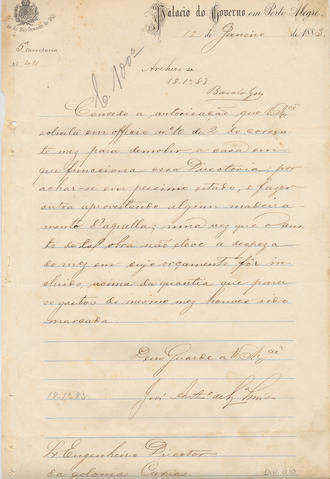 Palacio do Governo em Porto Alegre,
12 de Janeiro de 1883.
2ª Directoria
Nº 44
E. 100º
Archive-se
18.1º.83
Concedo a autorisação que V. Sª
solicita em officio nº 10 de 2 do corren-
te mez para demolir a casa em
que funcciona essa Directoria, por
achar-se em pessimo estado, e fazer
outra aproveitando algum madeira-
mento d'aquella; uma vez que o cus-
to de tal obra não eleve a despeza
do mez em cujo orçamento fôr in-
cluido, acima da quantia que para
os gastos do mesmo mez houver sido
marcada.
Deus Guarde a V. Sª
José Antº de
18-1º-83
Sr Engenheiro Director
da colonia Caxias